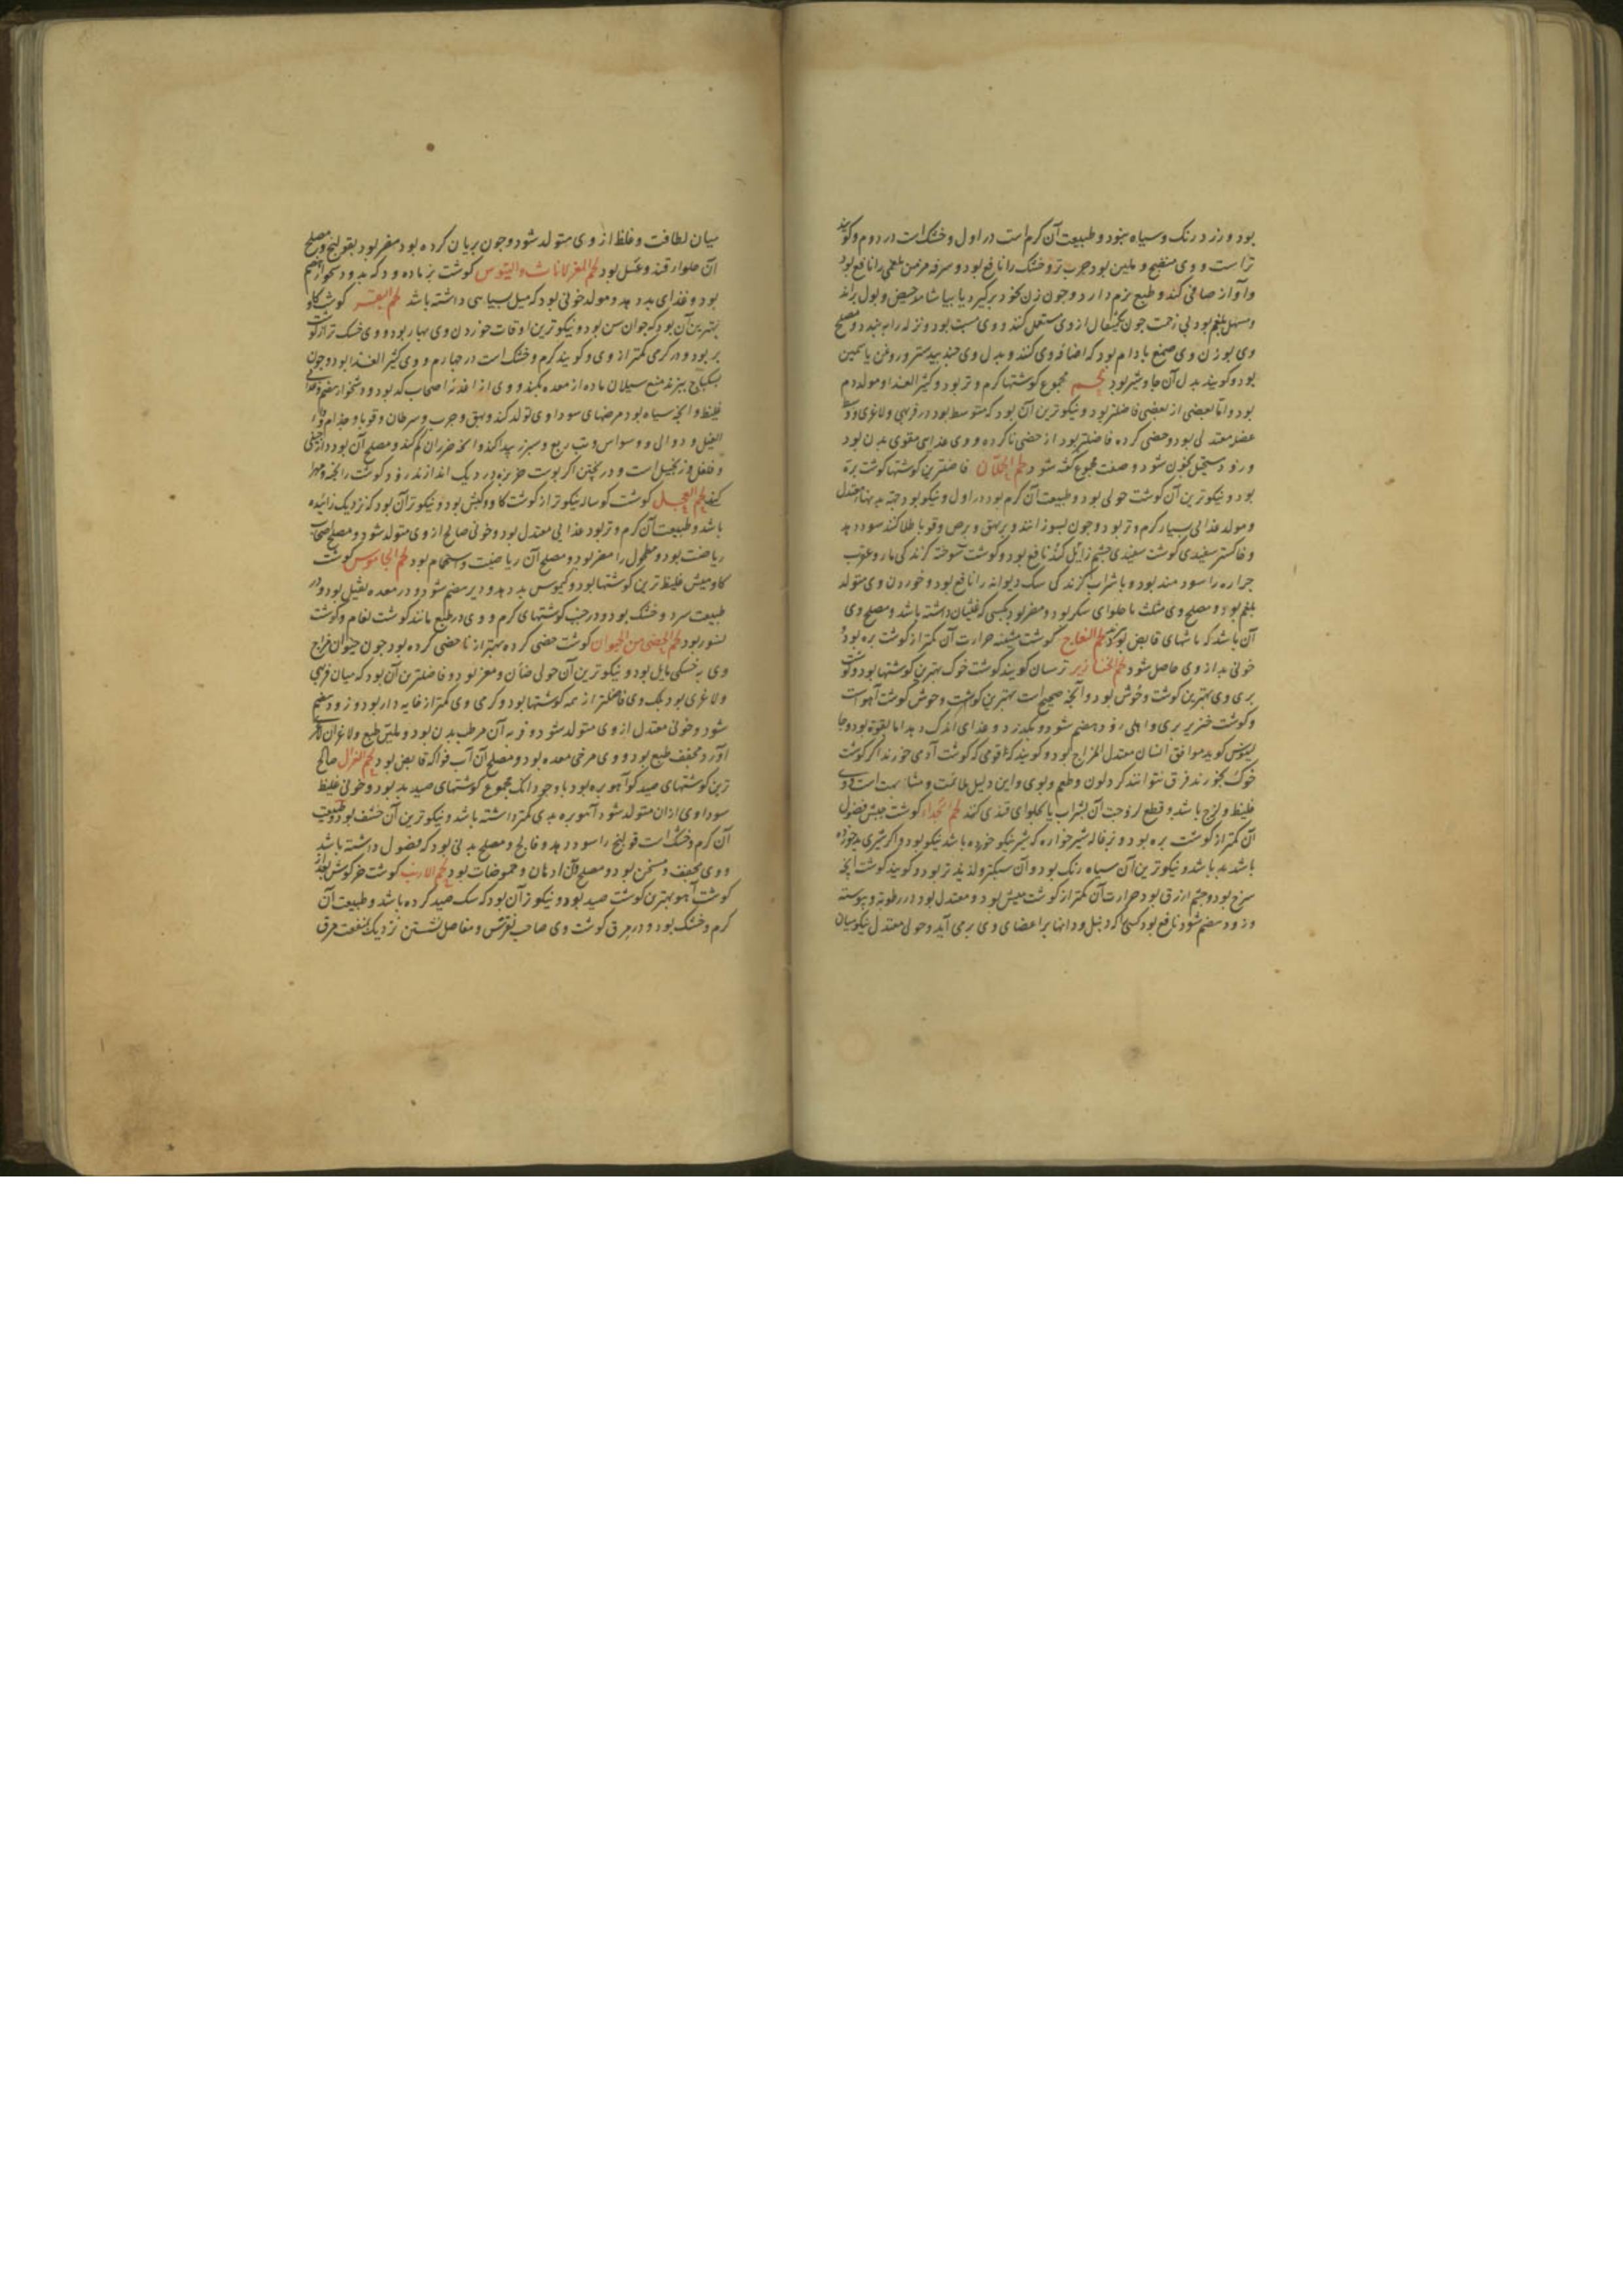 بود و زرد رنک و سیاه نبود و طبیعت آن کرم است در اول و خشک است در دوم و کویند
تر است و وی منضج و ملین بود جرب تر و خشک را نافع بود و سرفه مزمن بلغمی را نافع بود
و آواز صافی کند و طبع نرم دارد و چون زن بخود برکیرد یا بیاشامد حیض و بول براند
و مسهل بلغم بود بی زحمت چون یکمثقال از وی مستعمل کنند و وی مسبت بود و نزله را ببندد و مصلح
وی بوزن وی صمغ بادام بود که اضافه وی کنند و بدل وی جندبیدستر و روغن یاسمین
بود و کویند بدل آن جاوشیر بود لحم مجموع کوشتها کرم و تر بود و کثیر الغذا و مولد دم
بود و اما بعضی از بعضی فاضلتر بود و نیکوترین آن بود که متوسط بود در فربهی و لاغری و در
عضل معتدلی بود و خصی کرده فاضلتر بود از خصی ناکرده و وی غذایی مقوی بدن بود
و زود مستحیل بخون شود و صفت مجموع کفته شود لحم الحملان فاضلترین کوشتها کوشت بره
بود و نیکوترین آن کوشت حولی بود و طبیعت آن کرم بود در اول و نیکو بود جهة بدنها معتدل
و مولد غذایی بسیار کرم و تر بود و چون بسوزانند و بر بهق و برص و قوبا طلا کنند سود دهد
و خاکستر سفیدی کوشت سفیدی چشم زائل کند نافع بود و کوشت سوخته کزندکی مار و عقرب
جراره را سودمند بود و با شراب کزندکی سک دیوانه را نافع بود و خوردن وی متولد
بلغم بود و مصلح وی مثلث با حلوای سکر بود و مضر بود بکسی که غثیان داشته باشد و مصلح وی
آن باشد که باشهای قابض بود لحم النعاج کوشت میشینه حرارت آن کمتر از کوشت بره بود و
خونی بد از وی حاصل شود لحم الخنازیر ترسایان کویند کوشت خوک بهترین کوشتها بود و کوشت
بری وی بهترین کوشت وحوش بود و آنچه صحیح است بهترین کوشت وحوش کوشت آهو است
و کوشت خنزیر بری و اهلی زود هضم شود و بکذرد و غذای اندک دهد اما بقوة بود و جا
لینوس کوید موافق انسان معتدل المزاج بود و کویند که اقوامی که کوشت آدمی خورند اکر کوشت
خوک بخورند فرق نتوانند کرد در لون و طعم و بوی و این دلیل ملائمت و مشابهت است
غلیظ و لزج باشد و قطع لزوجت آن بشراب یا بحلوای قندی کنند لحم الجداء کوشت جبش فضول
آن کمتر از کوشت بره بود و بزغاله شیرخواره که شیر نیکو خورده باشد نیکو بود و اکر شیری بد خورده
باشد بد باشد و نیکوترین آن سیاه رنک بود و آن سبکتر و لذیذتر بود و کویند کوشت آنچه
سرخ بود و چشم ازرق بود حرارت آن کمتر از کوشت میش بود و معتدل بود در رطوبة و یبوسته
و زود هضم شود نافع بود کسی را که دنبل و دانها بر اعضای وی برمی آید و حولی معتدل نیکو میان
میان لطافت و غلظ از وی متولد شود و چون بریان کرده بود مضر بود بقولنج و مصلح
آن حلوا از قند و عسل بود لحم المعز الاناث والتیوس کوشت بز ماده و دکه بد و دشخوار هضم
بود و غذای بد دهد و مولد خونی بود که میل بسیاهی داشته باشد لحم البقر کوشت کاو
بهترین آن بود که جوان سن بود و نیکوترین اوقات خوردن وی بهار بود و وی خشک تر از کوشت
بز بود و در کرمی کمتر از وی و کویند کرم و خشک است در چهارم و وی کثیر الغذا بود و چون
بسکباج بپزند منع سیلان ماده از معده بکند و وی از اغذیه اصحاب کد بود و دشخوار هضم و غذای
غلیظ و آنچه سیاه بود مرضهای سوداوی تولد کند و بهق و جرب و سرطان و قوبا و جذام و داء
الفیل و دوالی و وسواس و تب ربع و سپرز پیدا کند و آنچه ضرر آن کم کند و مصلح آن بود دارچینی
و فلفل و زنجبیل است و در پختن اکر پوست خربزه در دیک اندازند زود کوشت را پخته و مهرا
کند لحم العجل کوشت کوساله نیکوتر از کوشت کاو و کبش بود و نیکوتر آن بود که نزدیک زائیده
باشد و طبیعت آن کرم و تر بود غذایی معتدل بود و خونی صالح از وی متولد شود و مصلح اصحاب
ریاضت بود و مطحول را مضر بود و مصلح آن ریاضت و استحمام بود لحم الجاموس کوشت
کاومیش غلیظ ترین کوشتها بود و کیموس بد دهد و دیر هضم شود و در معده ثقیل بود و در
طبیعت سرد و خشک بود و در جنب کوشتهای کرم و وی در طبع مانند کوشت نعام و کوشت
نسور بود لحم الخصی من الحیوان کوشت خصی کرده بهتر از نا خصی کرده بود چون حیوان مزاج
وی بخشکی مایل بود و نیکوترین آن حولی ضأن و معز بود و فاضلترین آن بود که میان فربهی
و لاغری بود بلک وی فاضلتر از همه کوشتها بود و کرمی وی کمتر از خایه دار بود و زود هضم
شود و خونی معتدل از وی متولد شود و فربه آن مرطب بدن بود و ملین طبع و لاغر آن لاغر
آورد مجفف طبع بود و وی مرخی معده بود و مصلح آن آب فواکه قابض بود لحم الغزال صالح
ترین کوشتهای صید کو آهو بره بود با وجود آنک مجموع کوشتهای صید بد بود و خونی غلیظ
سوداوی از آن متولد شود آهو بره بدی کمتر داشته باشد و نیکوترین آن خشف بود و طبیعت
آن کرم و خشک است قولنج را سود دهد و فالج و مصلح بدنی بود که فضول داشته باشد
و وی مجفف و مسخن بود و مصلح آن ادهان و حموضات بود لحم الارنب کوشت خرکوش بعد از
کوشت آهو بهترین کوشت صید بود و نیکوتر آن بود که سک صید کرده باشد و طبیعت آن
کرم و خشک بود و در مرق کوشت وی صاحب نقرس و مفاصل نشستن نزدیک بمنفعت مرق